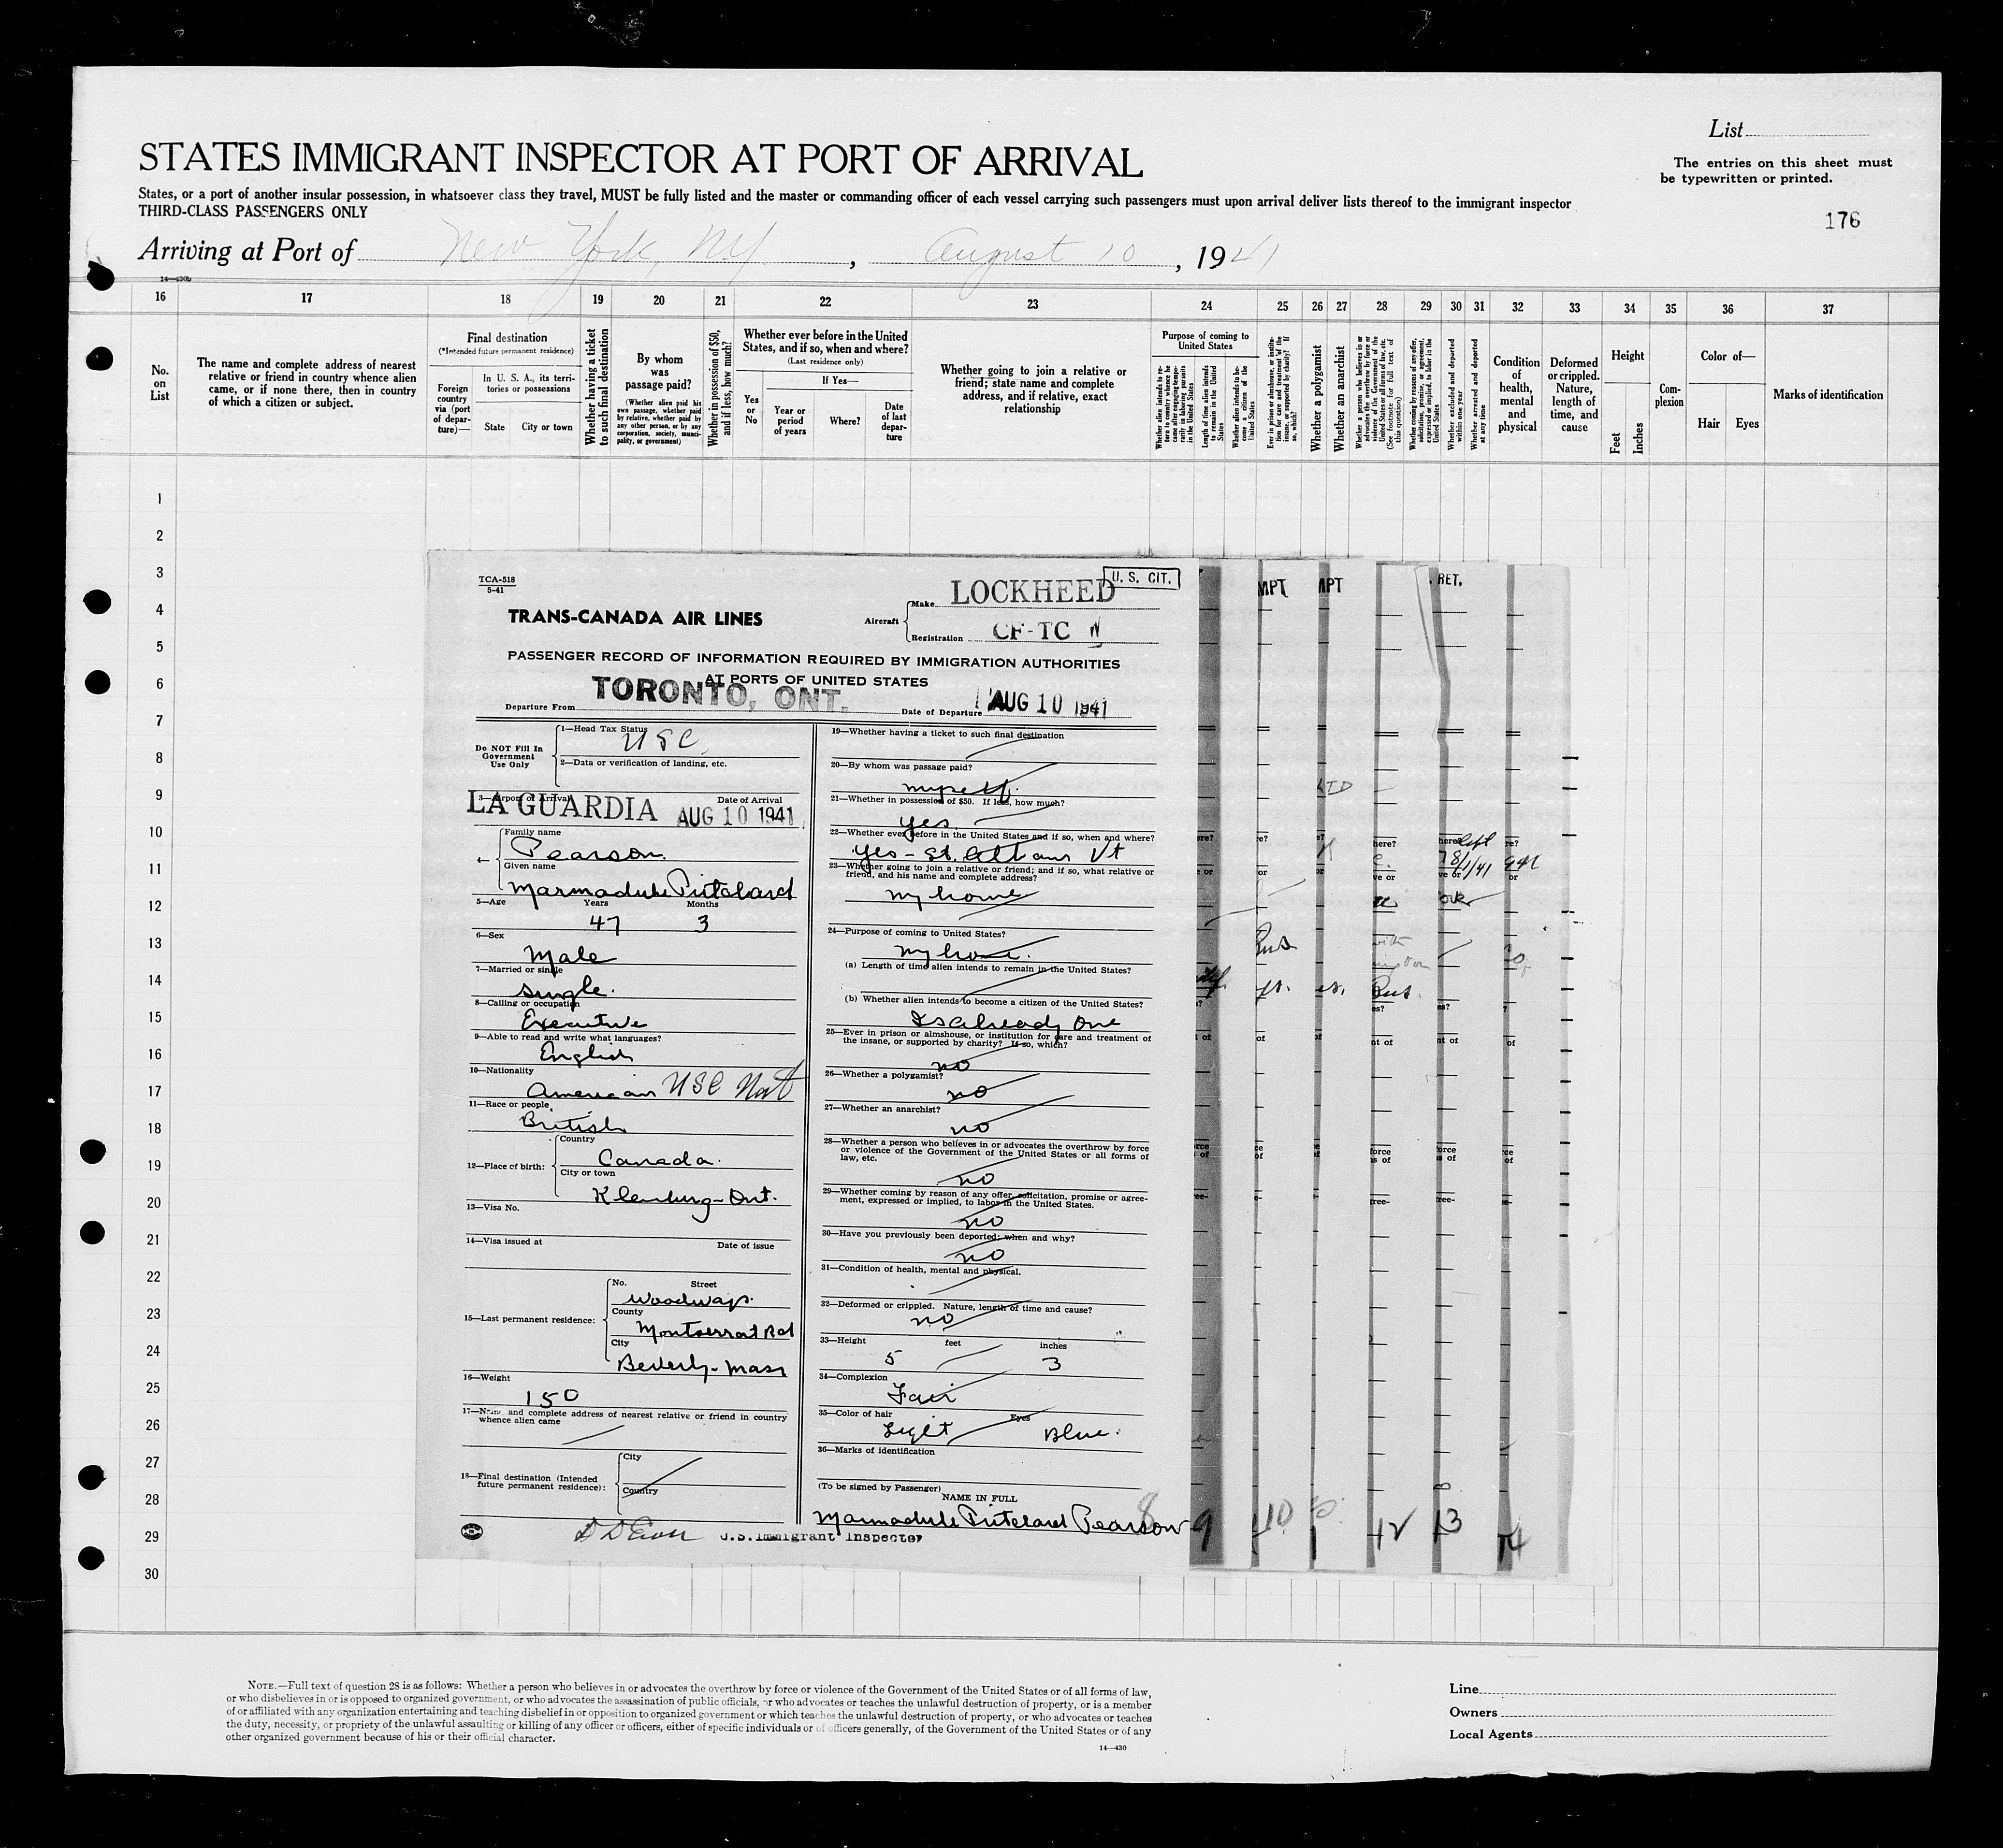 List
STATES IMMIGRANT INSPECTOR AT PORT OF ARRIVAL
The entries on this sheet must
be typewritten or printed.
States, or a port of another insular possession, in whatsoever class they travel, MUST be fully listed and the master or commanding officer of each vessel carrying such passengers must upon arrival deliver lists thereof to the immigrant inspector
THIRD-CLASS PASSENGERS ONLY
176
Arriving at Port of New York, N.Y. , August 10 , 1941
14—430b
16 17 18 19 20 21 22 23 24 25 26 27 28 29 30 31 32 33 34 35 36 37
No.
on
List
The name and complete address of nearest
relative or friend in country whence alien
came, or if none there, then in country
of which a citizen or subject.
Final destination
(*Intended future permanent residence)
Foreign
country
via (port
of depar-
ture)—
In U. S. A., its terri-
tories or possessions
State City or town
Whether having a ticket
to such final destination
By whom
was
passage paid?
(Whether alien paid his
own passage, whether paid
by relative, whether paid by
any other person, or by any
corporation, society, munici-
pality, or government)
Whether in possession of $50,
and if less, how much?
Whether ever before in the United
States, and if so, when and where?
(Last residence only)
Yes
or
No
If Yes—
Year or
period
of years
Where?
Date
of last
depar-
ture
Whether going to join a relative or
friend; state name and complete
address, and if relative, exact
relationship
Purpose of coming to
United States
Whether alien intends to re-
turn to country whence he
came after engaging tempo-
rarily in laboring pursuits
in the United States
Length of time alien intends
to remain in the United
States
Whether alien intends to be-
come a citizen of the
United States
Ever in prison or almshouse, or institu-
tion for care and treatment of the
insane, or supported by charity? If
so, which?
Whether a polygamist
Whether an anarchist
Whether a person who believes in or
advocates the overthrow by force or
violence of the Government of the
United States or all forms of law, etc.
(See footnote for full text of
this question)
Whether coming by reasons of any offer,
solicitation, promise, or agreement,
expressed or implied, to labor in the
United States
Whether excluded and deported
within one year
Whether arrested and deported
at any time
Condition
of
health,
mental
and
physical
Deformed
or crippled.
Nature,
length of
time, and
cause
Height
Feet
Inches
Com-
plexion
Color of—
Hair Eyes
Marks of identification
1
2
3
4
5
6
7
8
9
10
11
12
13
14
15
16
17
18
19
20
21
22
23
24
25
26
27
28
29
30
TCA-518
5-41
U. S. CIT.
TRANS-CANADA AIR LINES
Aircraft
Make LOCKHEED
Registration CF-TC N
PASSENGER RECORD OF INFORMATION REQUIRED BY IMMIGRATION AUTHORITIES
AT PORTS OF UNITED STATES
Departure From TORONTO, ONT. Date of Departure AUG 10 1941
Do NOT Fill In
Government
Use Only
1—Head Tax Status
USC
2—Data or verification of landing, etc.
3—Airport of Arrival Date of Arrival
LA GUARDIA AUG 10 1941
4—
Family name
Pearson
Given name
Marmaduke Pritchard
5—Age Years Months
47 3
6—Sex
Male
7—Married or single
Single.
8—Calling or occupation
Executive
9—Able to read and write what languages?
English
10—Nationality
American USC Nat
11—Race or people
British
12—Place of birth:
Country
Canada.
City or town
Klenburg-Ont.
13—Visa No.
14—Visa issued at Date of issue
15—Last permanent residence:
No. Street
Woodways.
County
Montserrat Rd
City
Beverly-Mass
16—Weight
150
17—Name and complete address of nearest relative or friend in country
whence alien came
18—Final destination (Intended
future permanent residence):
City
Country
U.S. Immigrant Inspector
19—Whether having a ticket to such final destination
20—By whom was passage paid?
myself.
21—Whether in possession of $50. If less, how much?
yes.
22—Whether ever before in the United States and if so, when and where?
Yes - St. Albans Vt
23—Whether going to join a relative or friend; and if so, what relative or
friend, and his name and complete address?
my home
24—Purpose of coming to United States?
my home.
(a) Length of time alien intends to remain in the United States?
(b) Whether alien intends to become a citizen of the United States?
Is already one
25—Ever in prison or almshouse, or institution for care and treatment of
the insane, or supported by charity? If so, which?
no
26—Whether a polygamist?
no
27—Whether an anarchist?
no
28—Whether a person who believes in or advocates the overthrow by force
or violence of the Government of the United States or all forms of
law, etc.
no
29—Whether coming by reason of any offer, solicitation, promise or agree-
ment, expressed or implied, to labor in the United States.
no
30—Have you previously been deported; when and why?
no
31—Condition of health, mental and physical.
32—Deformed or crippled. Nature, length of time and cause?
no
33—Height feet inches
5 3
34—Complexion
Fair
35—Color of hair Eyes
Light Blue.
36—Marks of identification
(To be signed by Passenger)
NAME IN FULL
Marmaduke Pritchard Pearson
8 9 10 12 13 14
NOTE.—Full text of question 28 is as follows: Whether a person who believes in or advocates the overthrow by force or violence of the Government of the United States or of all forms of law,
or who disbelieves in or is opposed to organized government, or who advocates the assassination of public officials, or who advocates or teaches the unlawful destruction of property, or is a member
of or affiliated with any organization entertaining and teaching disbelief in or opposition to organized government or which teaches the unlawful destruction of property, or who advocates or teaches
the duty, necessity, or propriety of the unlawful assaulting or killing of any officer or officers, either of specific individuals or of officers generally, of the Government of the United States or of any
other organized government because of his or their official character.
14—430
Line
Owners
Local Agents